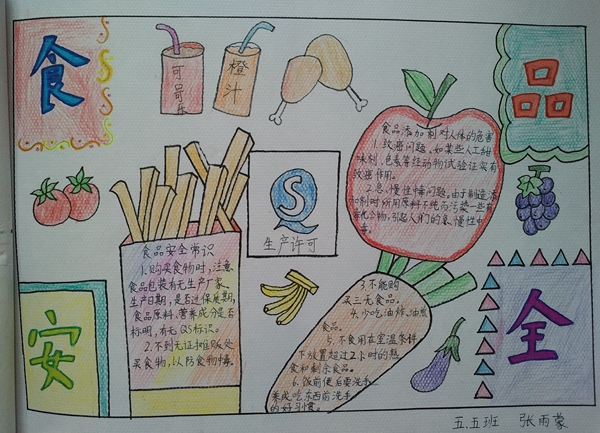 食
品
安
全
可
口
可
乐
橙
汁
食品添加剂对人体的危害
1. 致癌问题,如某些人工甜
味剂、色素等经动物试验证实有
致癌作用。
2. 急、慢性中毒问题。由于制造添
加剂时所用原料不纯而污染一些有
害化合物,引起人们的急、慢性中
毒。
S
生产许可
食品安全常识
1. 购买食物时,注意
食品包装有无生产厂家、
生产日期,是否过保质期,
食品原料、营养成分是否
标明,有无QS标识。
2. 不到无证摊贩处
买食物,以防食物中毒。
3. 不能购
买三无食品。
4. 少吃油炸、油煎
食品。
5. 不食用在室温条件
下放置超过2小时的熟
食和剩余食品。
6. 饭前便后要洗手,
养成吃东西前洗手
的好习惯。
五.五班 张雨蒙